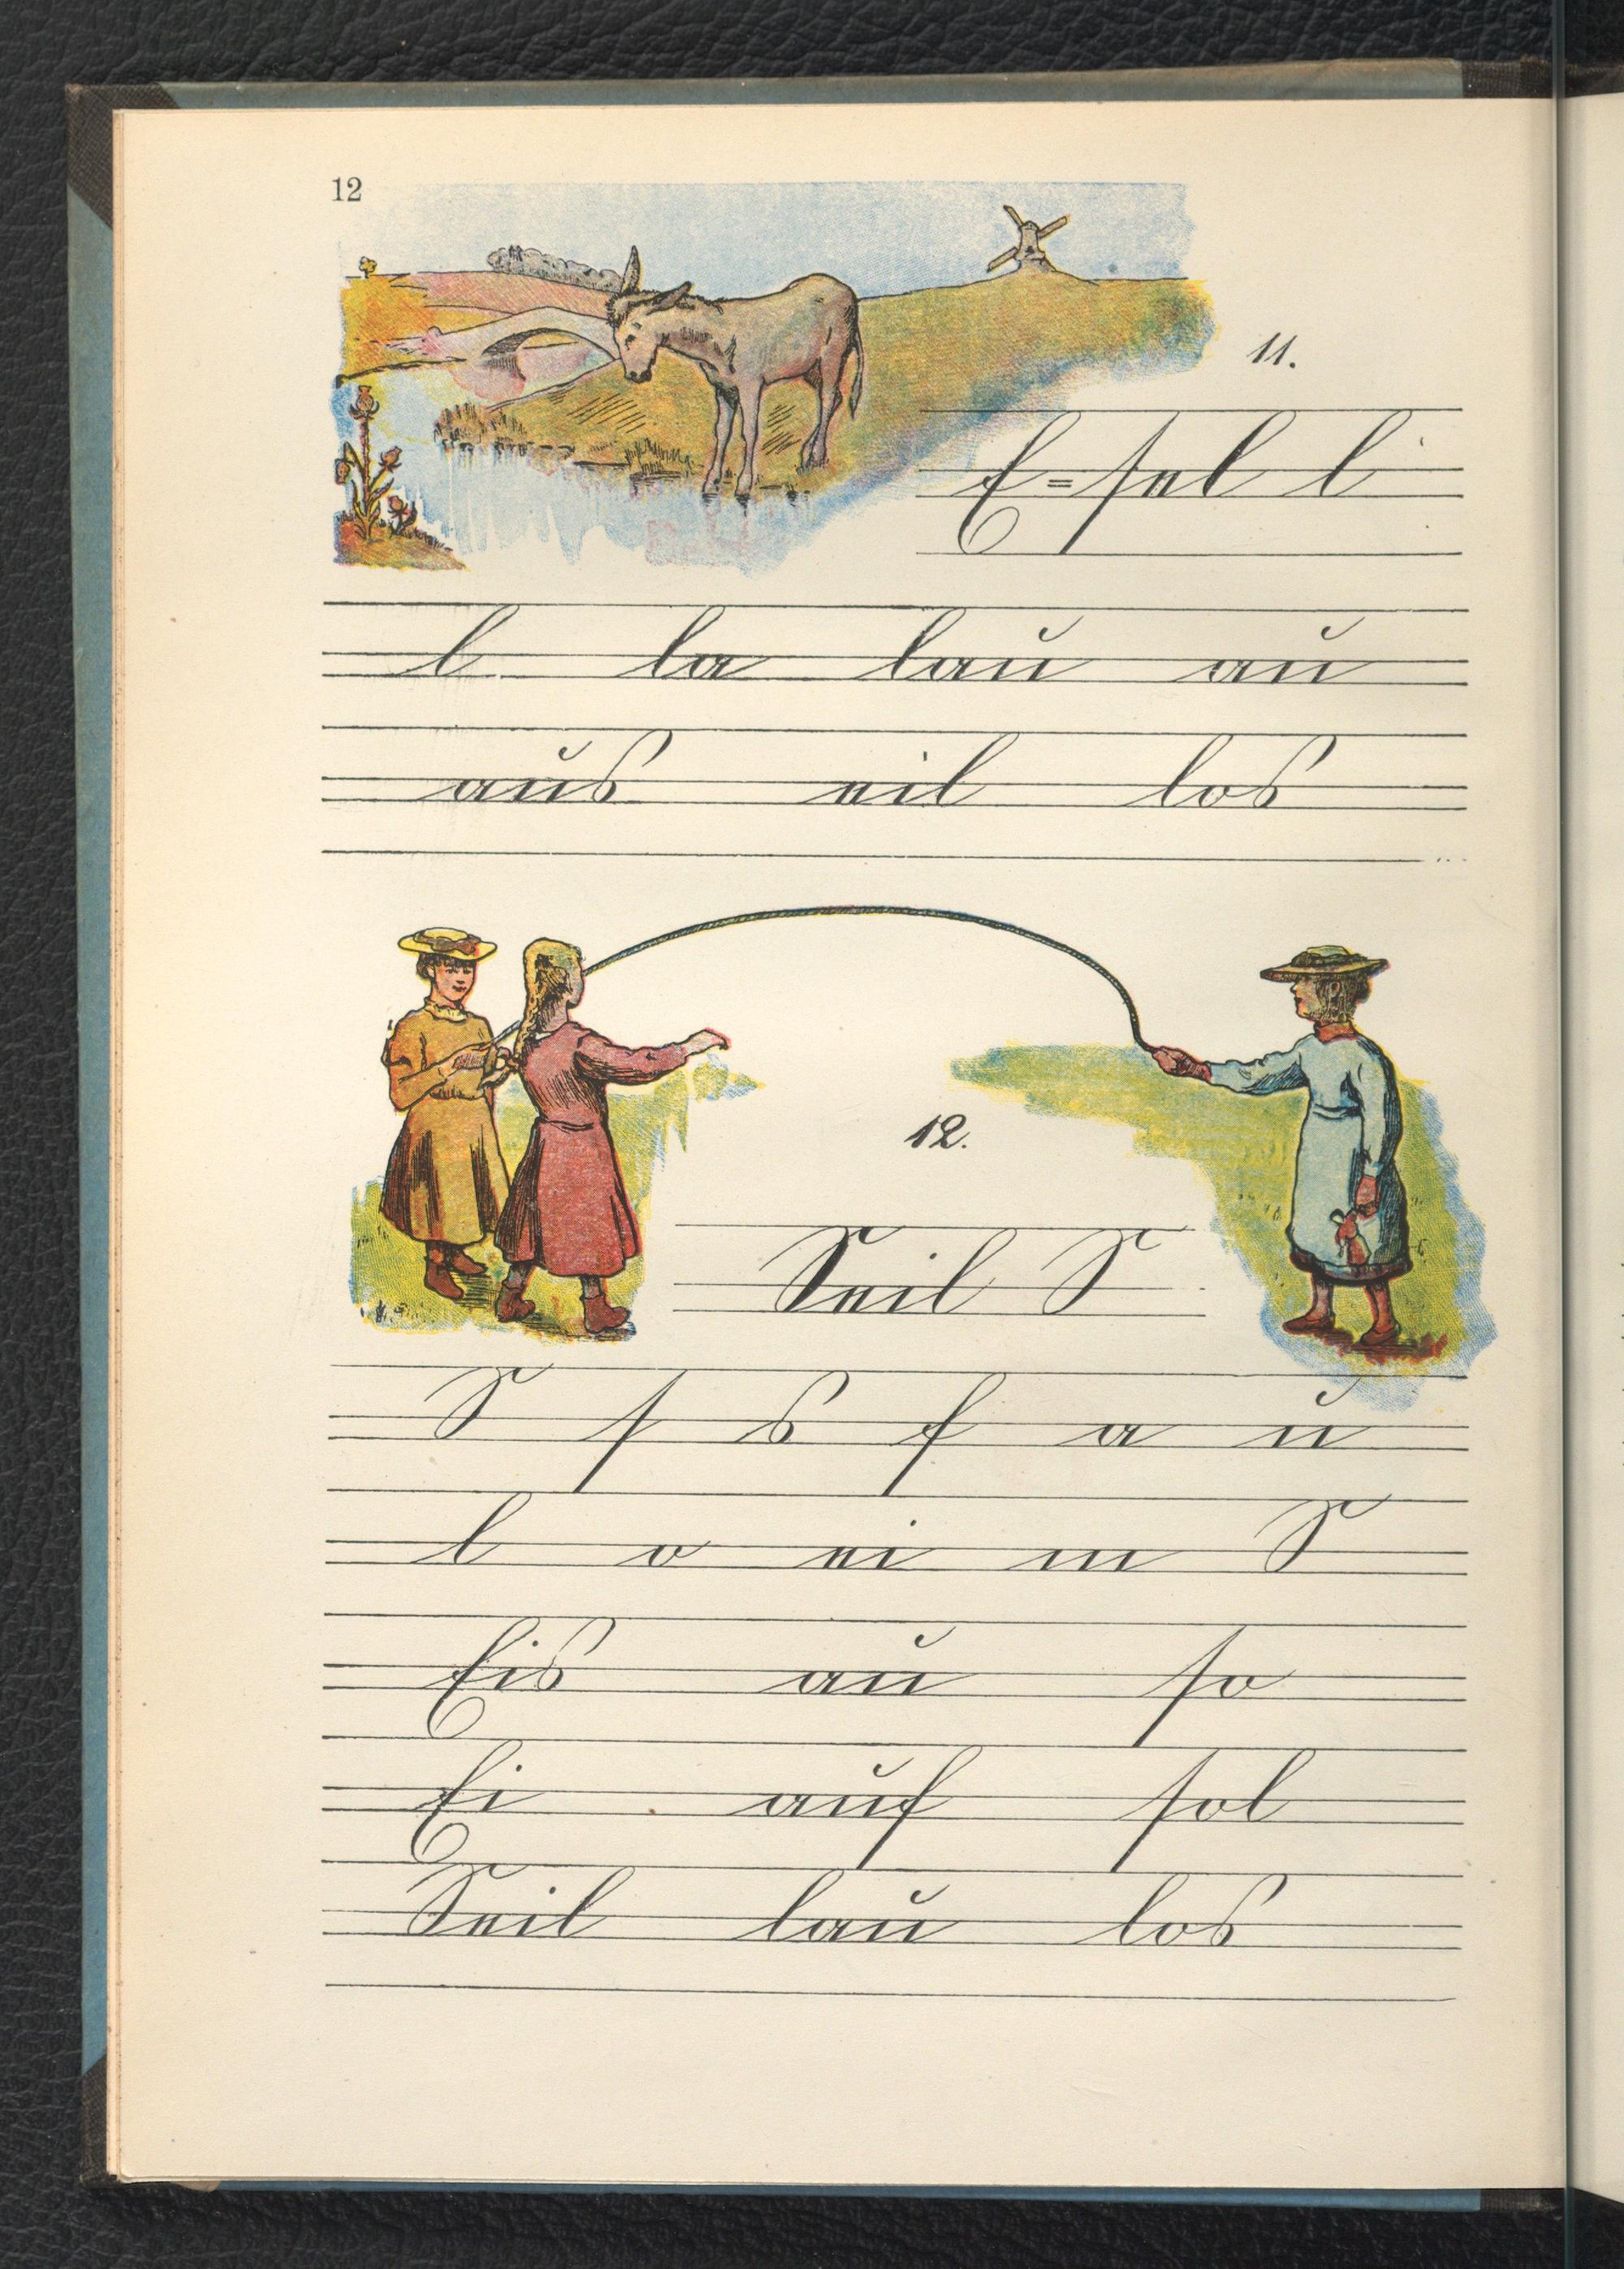 12
11.
E=sel l
l la lau au
aus eil los
12.
Seil S
S s s f a u
l o ei m S
Eis au so
Ei auf sol
Seil lau los